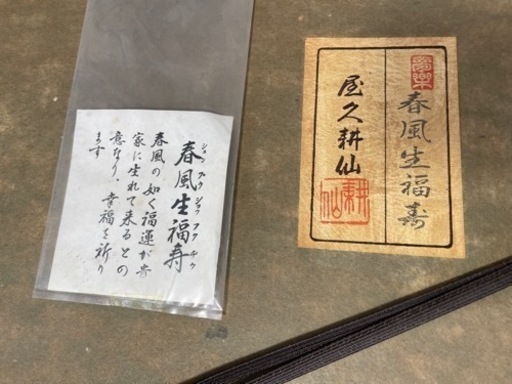 春風生福寿
シュンプウジョウフクヂュ
春風の如く福運が貴
家に生れて来るとの
意なり、幸福を祈り
ます
春風生福寿
屋久耕仙
耕仙